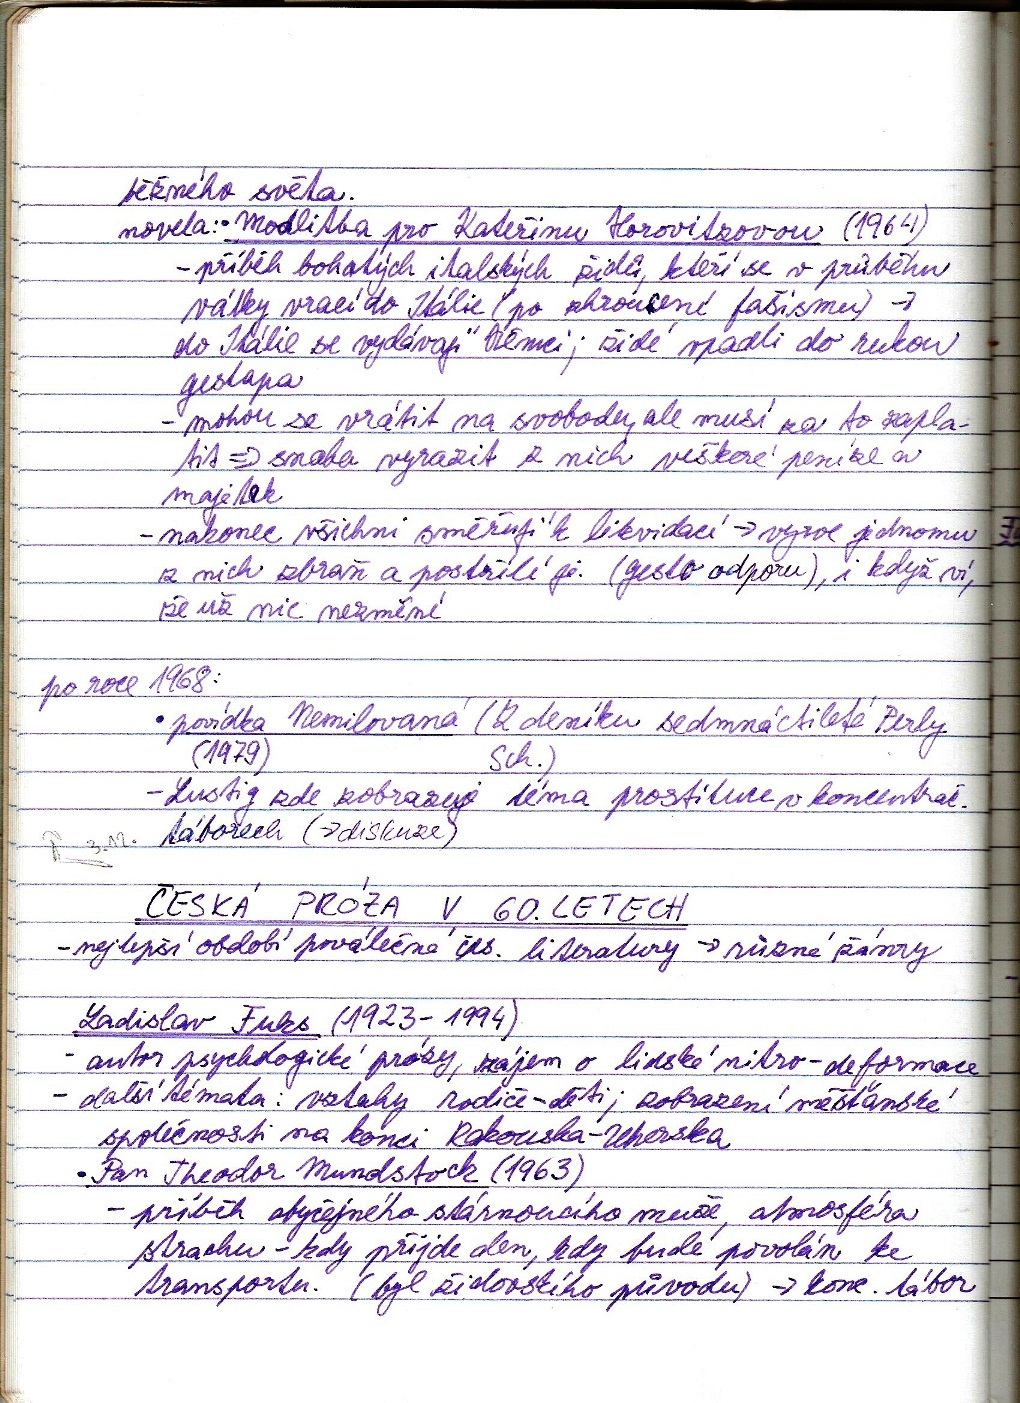 běžného světa.
novela: • Modlitba pro Kateřinu Horovitzovou (1964)
- příběh bohatých italských židů, kteří se v průběhu
války vrací do Itálie (po zhroucení fašismu) →
do Itálie se vydávají Němci; židé vpadli do rukou
gestapa
- mohou se vrátit na svobodu, ale musí za to zapla-
tit => snaha vyrazit z nich veškeré peníze a
majetek
- nakonec všichni směřují k likvidaci → vyrve jednomu
z nich zbraň a postřílí je. (gesto odporu), i když ví,
že už nic nezmění
po roce 1968:
• povídka Nemilovaná (Z deníku sedmnáctileté Perly
(1979) Sch.)
- Lustig zde zobrazuje téma prostituce v koncentrač.
táborech (→ diskuze)
3.12.
ČESKÁ PRÓZA V 60. LETECH
- nejlepší období poválečné čes. literatury → různé žánry
Ladislav Fuks (1923-1994)
- autor psychologické prózy, zájem o lidské nitro - deformace
- další témata: vztahy rodiče-děti; zobrazení měšťanské
společnosti na konci Rakouska-Uherska
• Pan Theodor Mundstock (1963)
- příběh obyčejného stárnoucího muže, atmosféra
strachu - kdy přijde den, kdy bude povolán ke
transportu. (byl židovského původu) → konc. tábor